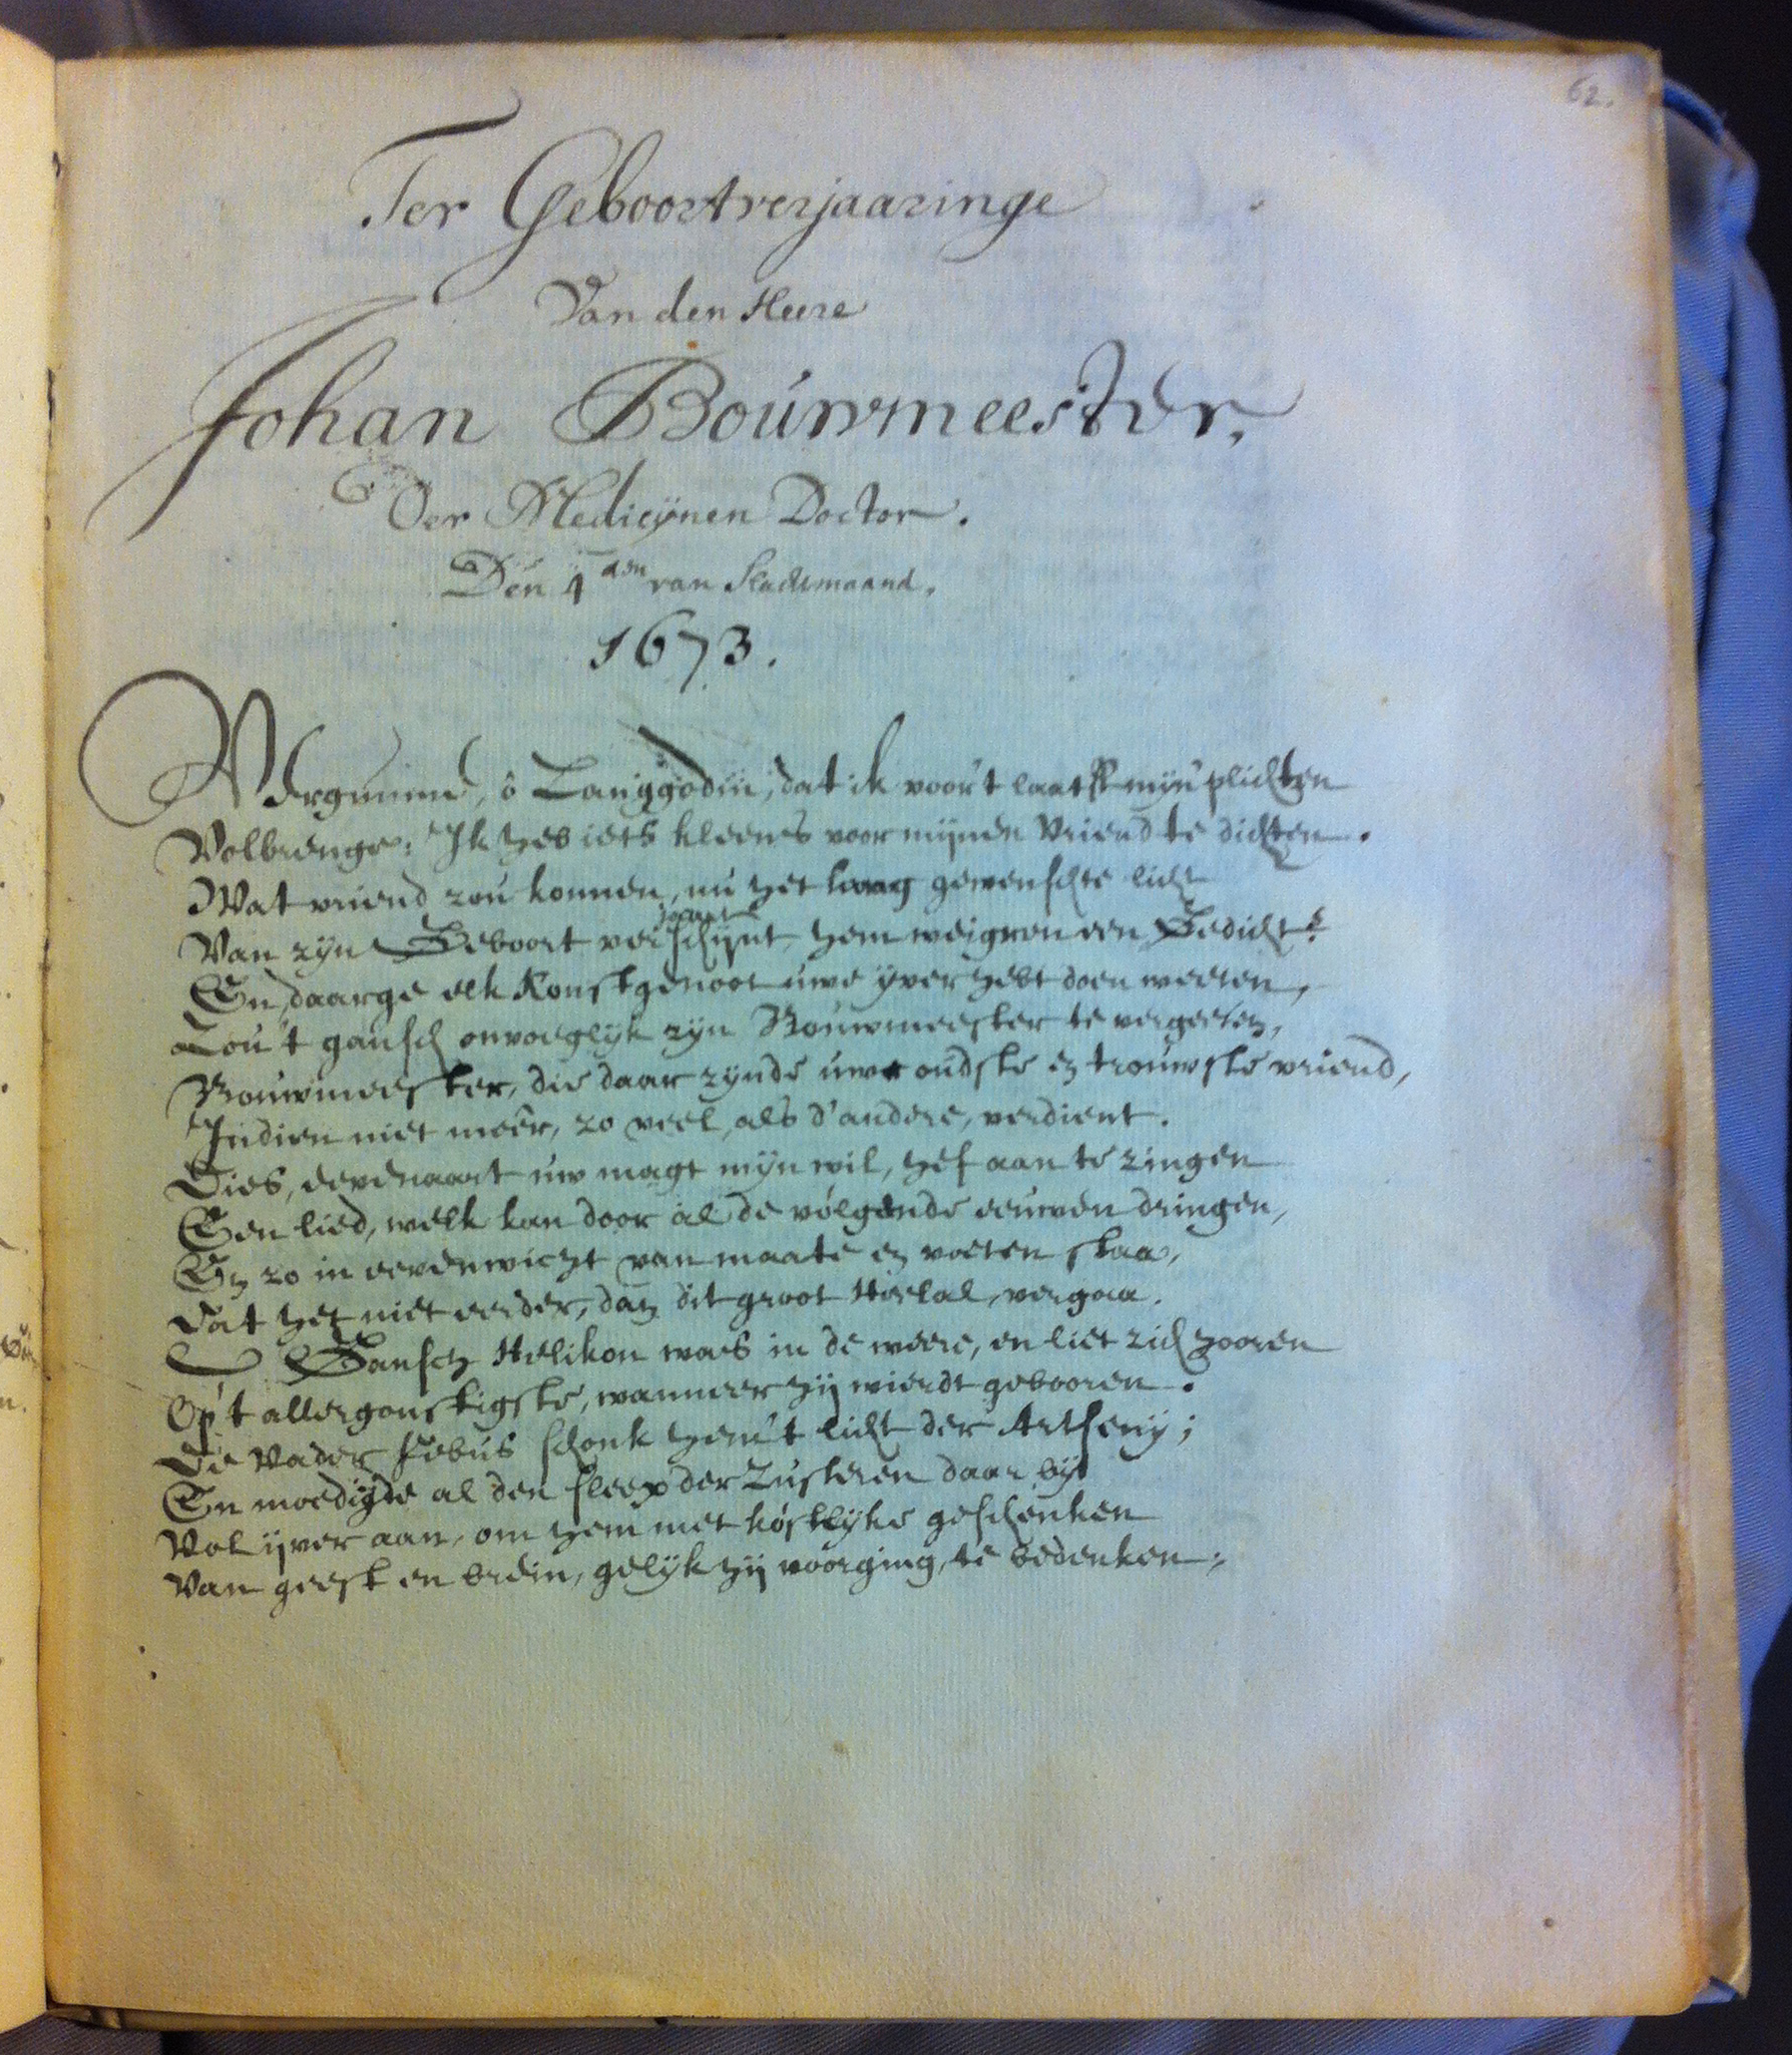 62.
Ter Geboortverjaaringe
Van den Heere
Johan Bouwmeester,
Der Medicynen Doctor.
Den 4den van Slachtmaand.
1673.
Vergunne, ô Zanggodin, dat ik voor 't laatst mijn plichten
Volbrenge: Ik heb iets kleens voor mijnen Vriend te dichten.
Wat vriend zou konnen, nu het lang gewenschte licht
Van zyn Geboort verschijnt, hem weigren een Gedicht?
En, daar ge elk Konstgenoot uwe yver hebt doen weeten,
Zou 't gansch onvoeglyk zyn Bouwmeester te vergeeten,
Bouwmeester, die daar zynde uwe oudste en trouwste vriend,
Indien niet meêr, zo veel, als d'andere, verdient.
Dies, eevenaart uw magt mijn wil, hef aan te zingen
Een lied, welk kan door al de volgende eeuwen dringen,
En zo in eevenwicht van maate en voeten staa,
Dat het niet eerder, dan dit groot Heelal, vergaa.
Gansch Helikon was in de weere, en liet zich hooren
Op 't allergonstigste, wanneer hij wierdt gebooren.
De Vader Febus schonk hem 't licht der Artseny;
En moedigde al den sleep der Zusteren daar by
Vol ijver aan, om hem met kostlyke geschenken
Van geest en brein, gelyk hij voorging, te bedenken;